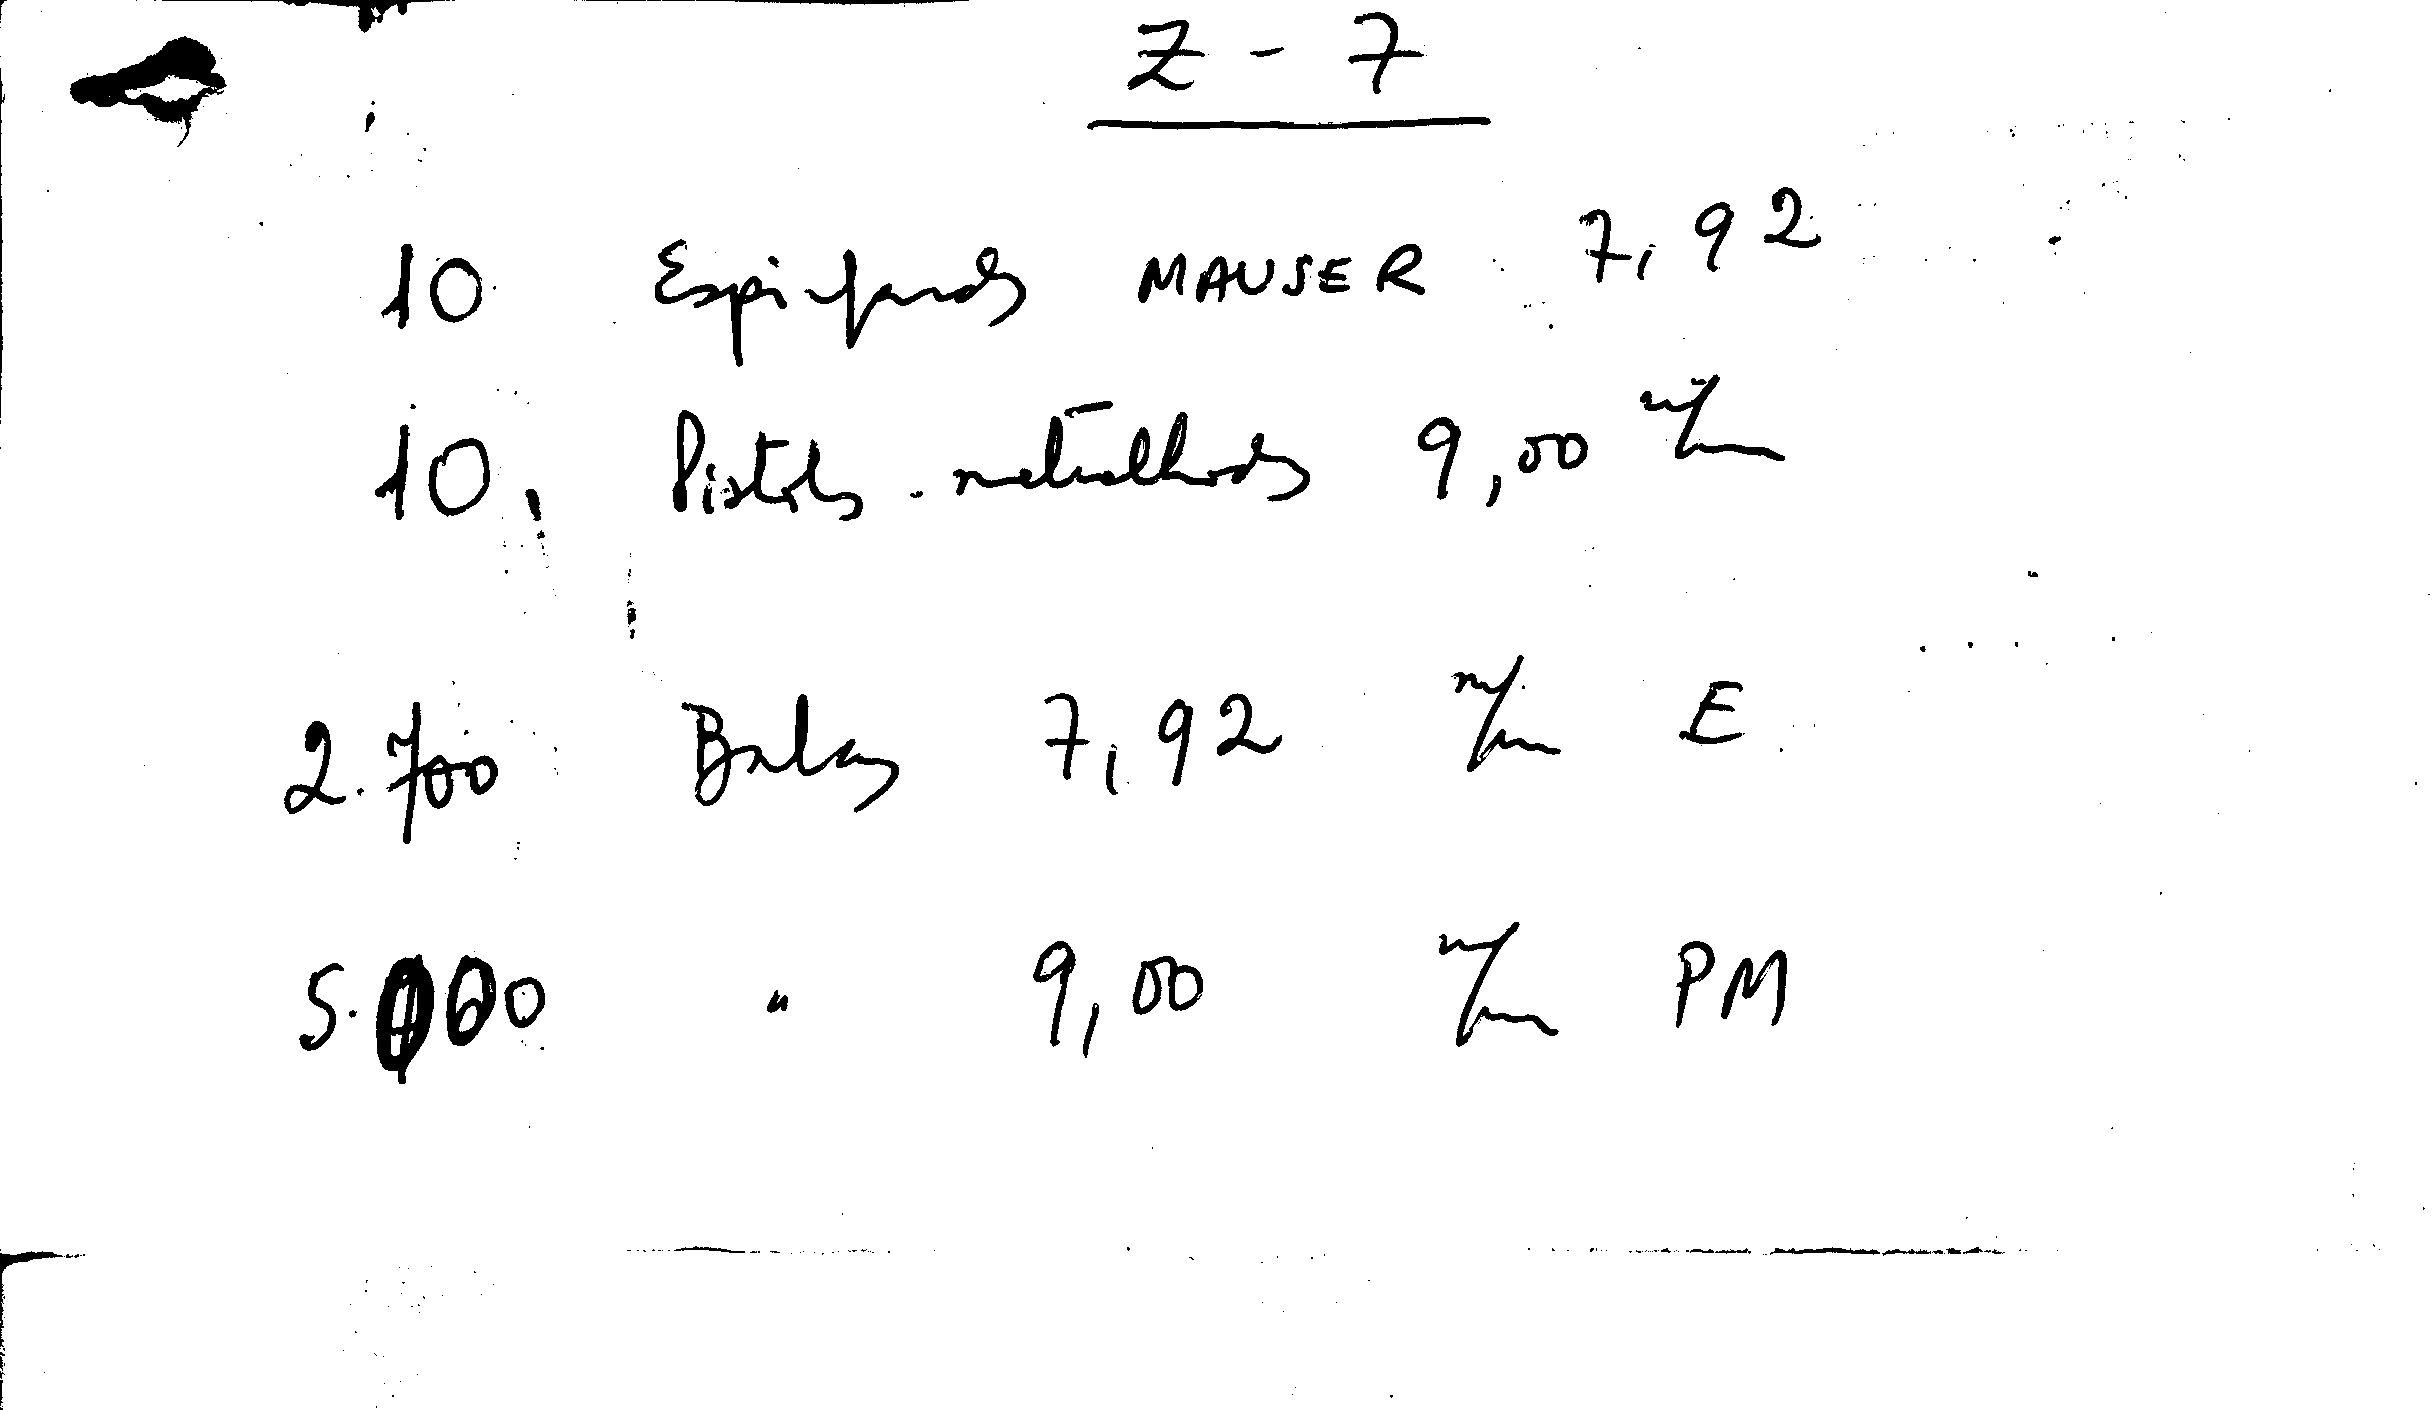 Z - 7
10 Espingardas MAUSER 7,92
10 Pistolas-metralhadoras 9,00 m/m
2.700 Balas 7,92 m/m E
5.000 " 9,00 m/m PM